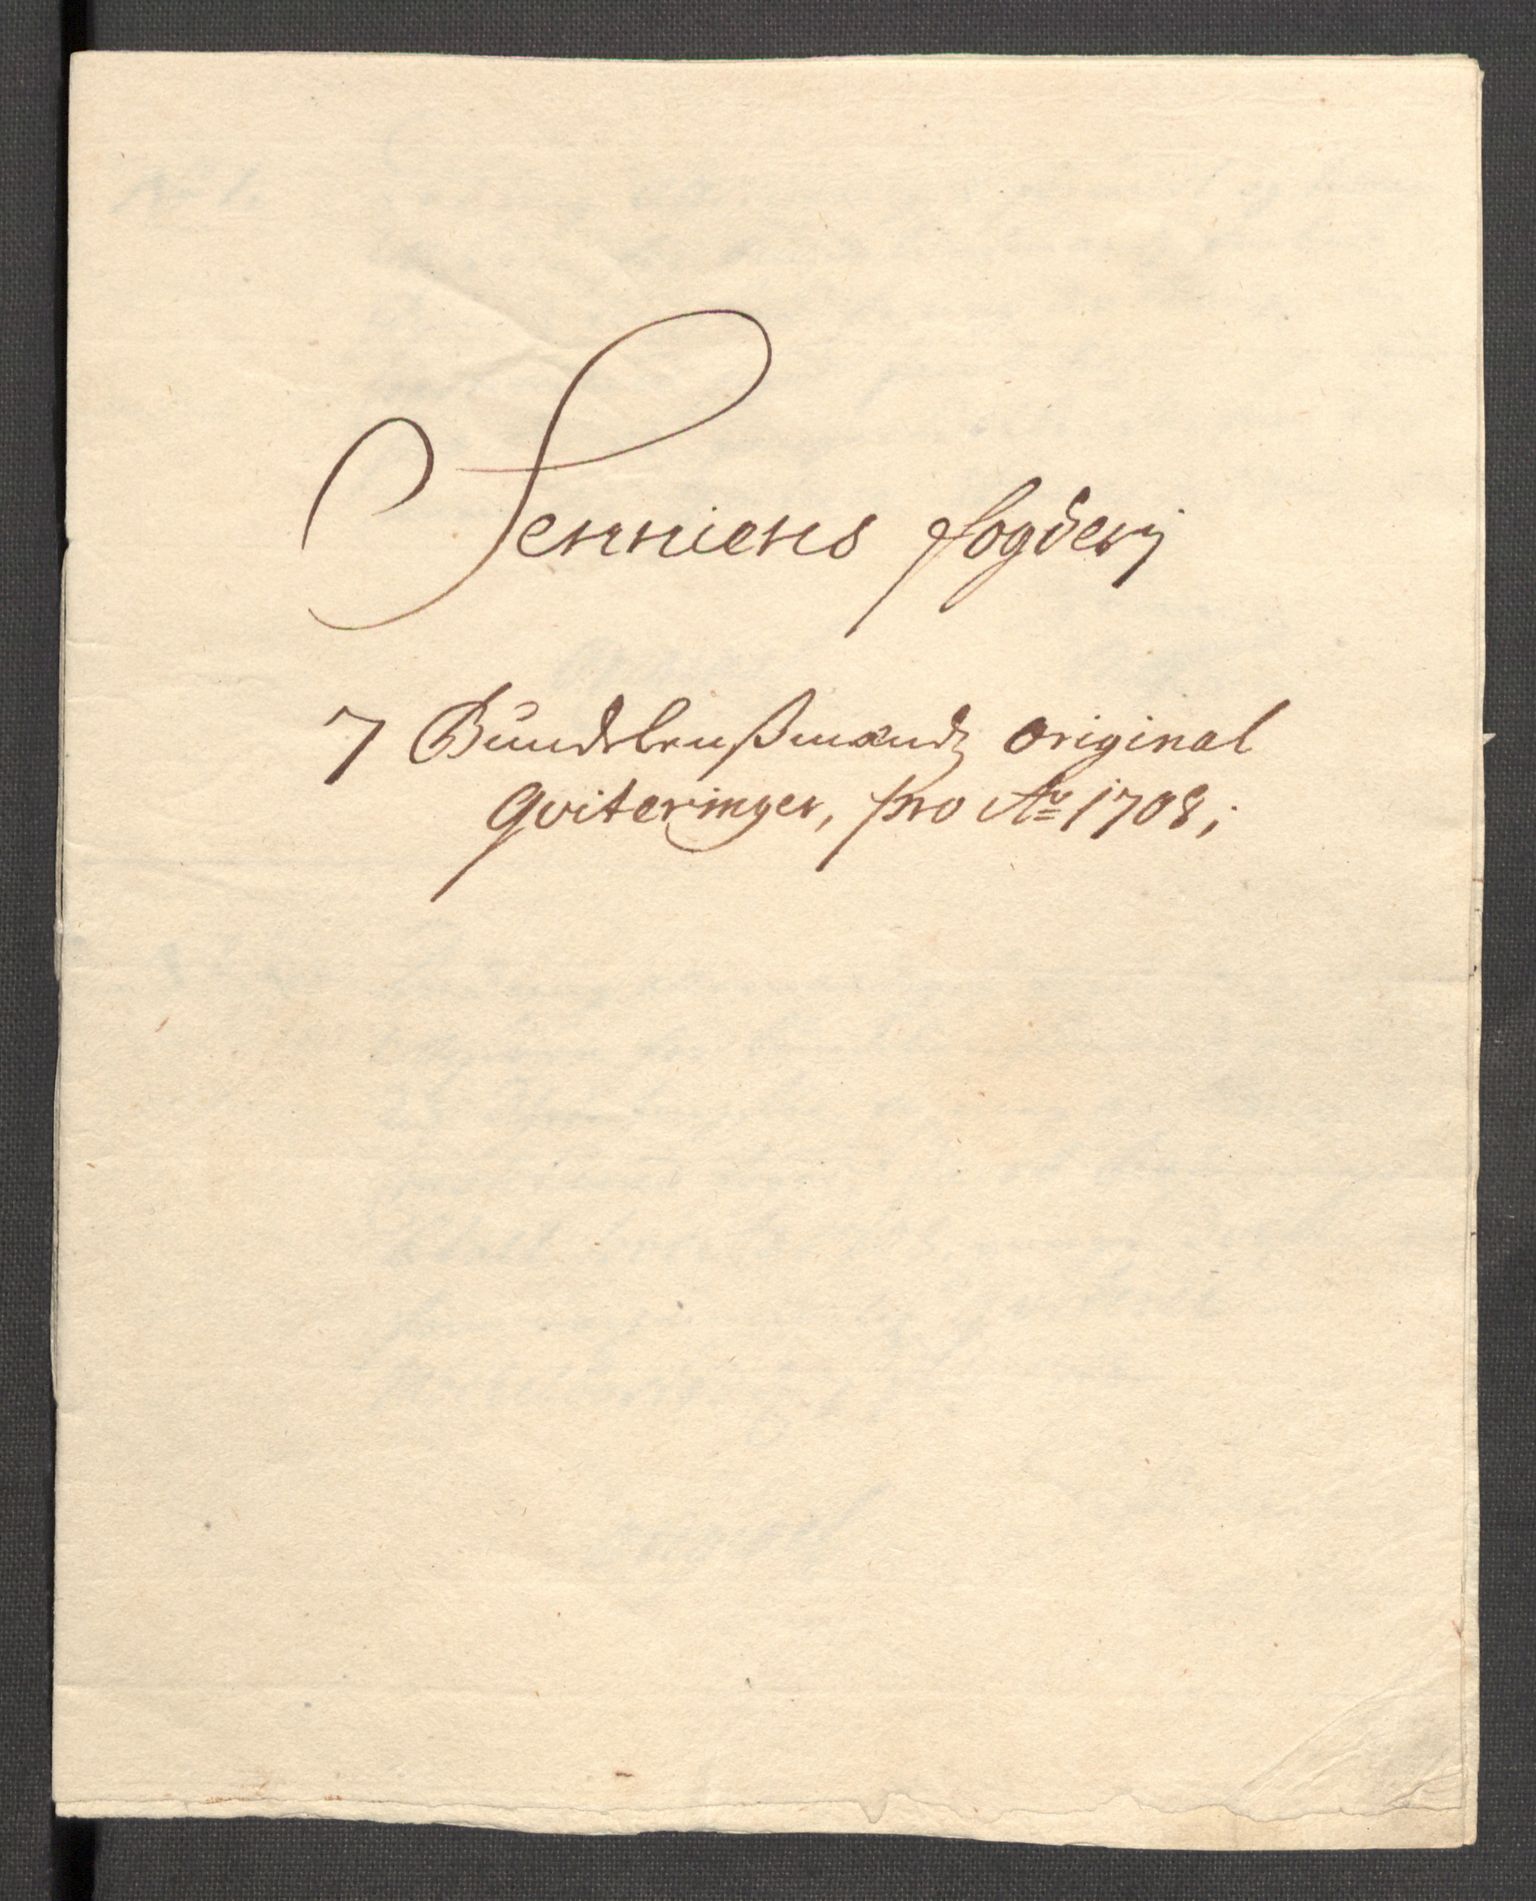 Senniens fogderij
7 Bundelenßmænds original
Qviteringer, pro Ao 1708;